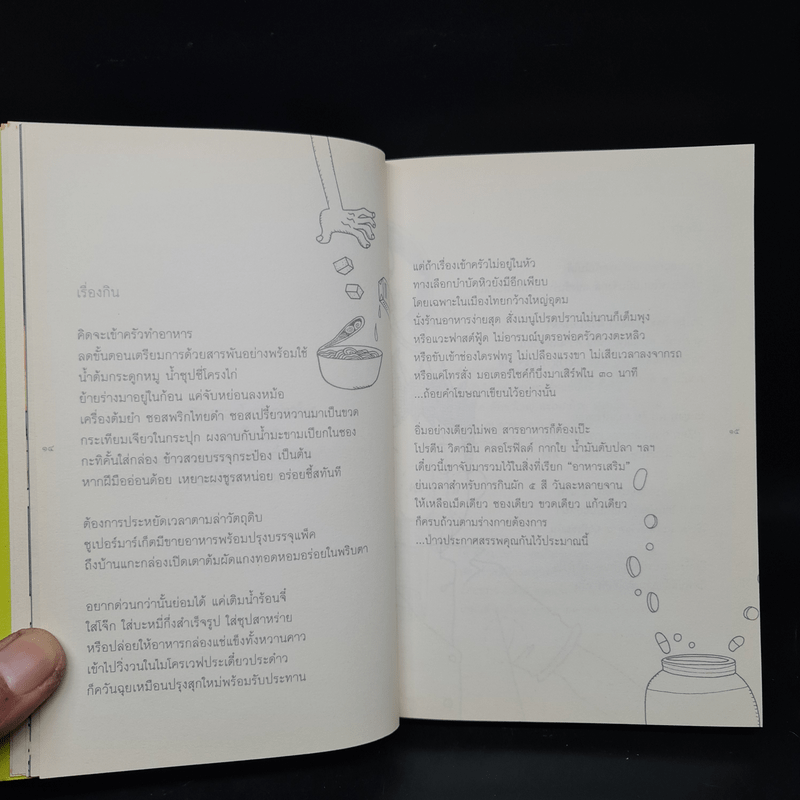 เรื่องกิน
คิดจะเข้าครัวทำอาหาร
ลดขั้นตอนเตรียมการด้วยสารพันอย่างพร้อมใช้
น้ำต้มกระดูกหมู น้ำซุปซี่โครงไก่
ย้ายร่างมาอยู่ในก้อน แค่จับหย่อนลงหม้อ
เครื่องต้มยำ ซอสพริกไทยดำ ซอสเปรี้ยวหวานมาเป็นขวด
กระเทียมเจียวในกระปุก ผงลาบกับน้ำมะขามเปียกในซอง
กะทิคั้นใส่กล่อง ข้าวสวยบรรจุกระป๋อง เป็นต้น
หากฝีมืออ่อนด้อย เหยาะผงชูรสหน่อย อร่อยชี้สทันที
๑๔
ต้องการประหยัดเวลาตามล่าวัตถุดิบ
ซูเปอร์มาร์เก็ตมีขายอาหารพร้อมปรุงบรรจุแพ็ค
ถึงบ้านแกะกล่องเปิดเตาต้มผัดแกงทอดหอมอร่อยในพริบตา
อยากด่วนกว่านั้นย่อมได้ แค่เติมน้ำร้อนจี๋
ใส่โจ๊ก ใส่บะหมี่กึ่งสำเร็จรูป ใส่ซุปสาหร่าย
หรือปล่อยให้อาหารกล่องแช่แข็งทั้งหวานคาว
เข้าไปวิ่งวนในไมโครเวฟประเดี๋ยวประด๋าว
ก็ควันฉุยเหมือนปรุงสุกใหม่พร้อมรับประทาน
แต่ถ้าเรื่องเข้าครัวไม่อยู่ในหัว
ทางเลือกบำบัดหิวยังมีอีกเพียบ
โดยเฉพาะในเมืองไทยกว้างใหญ่อุดม
นั่งร้านอาหารง่ายสุด สั่งเมนูโปรดปรานไม่นานก็เต็มพุง
หรือแวะฟาสต์ฟู้ด ไม่อารมณ์บูดรอพ่อครัวควงตะหลิว
หรือขับเข้าช่องไดรฟ์ทรู ไม่เปลืองแรงขา ไม่เสียเวลาลงจากรถ
หรือแค่โทรสั่ง มอเตอร์ไซค์ก็บึ่งมาเสิร์ฟใน ๓๐ นาที
...ถ้อยคำโฆษณาเขียนไว้อย่างนั้น
อิ่มอย่างเดียวไม่พอ สารอาหารก็ต้องเป๊ะ
๑๕
โปรตีน วิตามิน คลอโรฟิลด์ กากใย น้ำมันตับปลา ฯลฯ
เดี๋ยวนี้เขาจับมารวมไว้ในสิ่งที่เรียก “อาหารเสริม”
ย่นเวลาสำหรับการกินผัก ๕ สี วันละหลายจาน
ให้เหลือเม็ดเดียว ซองเดียว ขวดเดียว แก้วเดียว
ก็ครบถ้วนตามร่างกายต้องการ
...ป่าวประกาศสรรพคุณกันไว้ประมาณนี้